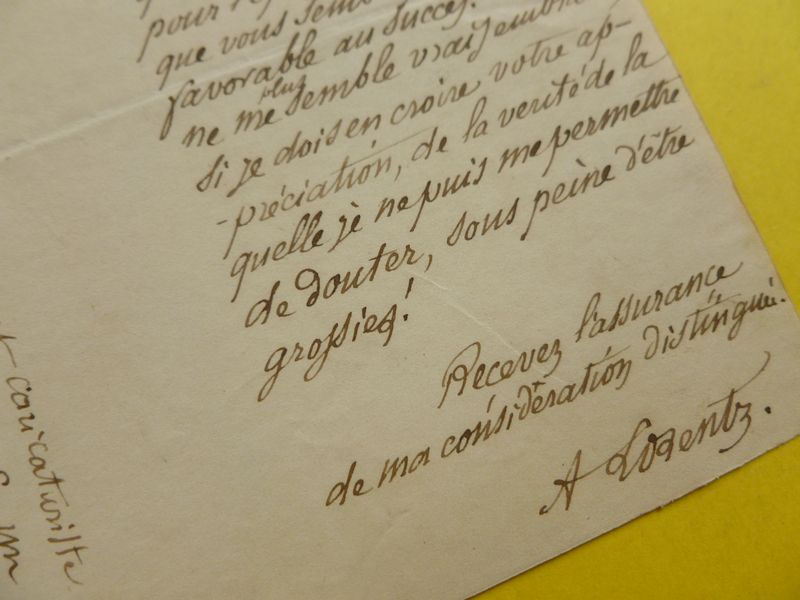 pour l'
que vous sem
favorable au succès.
plus
ne me semble vraisembl
si je dois en croire votre ap-
-préciation, de la verité de la
quelle je ne puis me permettre
de douter, sous peine d'être
grossier!
Recevez l'assurance
de ma considération distinguée.
A Lorentz.
caricaturiste